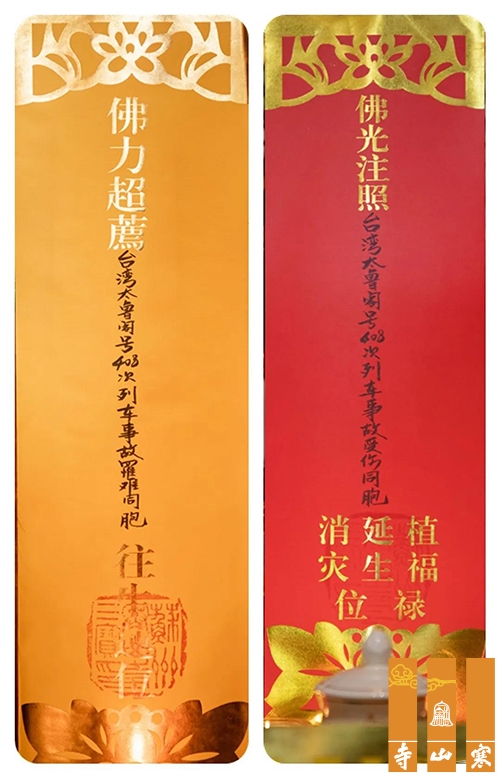 佛力超薦
台湾太鲁阁号408次列车事故罹难同胞
往生位
佛光注照
台湾太鲁阁号408次列车事故受伤同胞
消灾
延生
植福
禄位
寒山寺